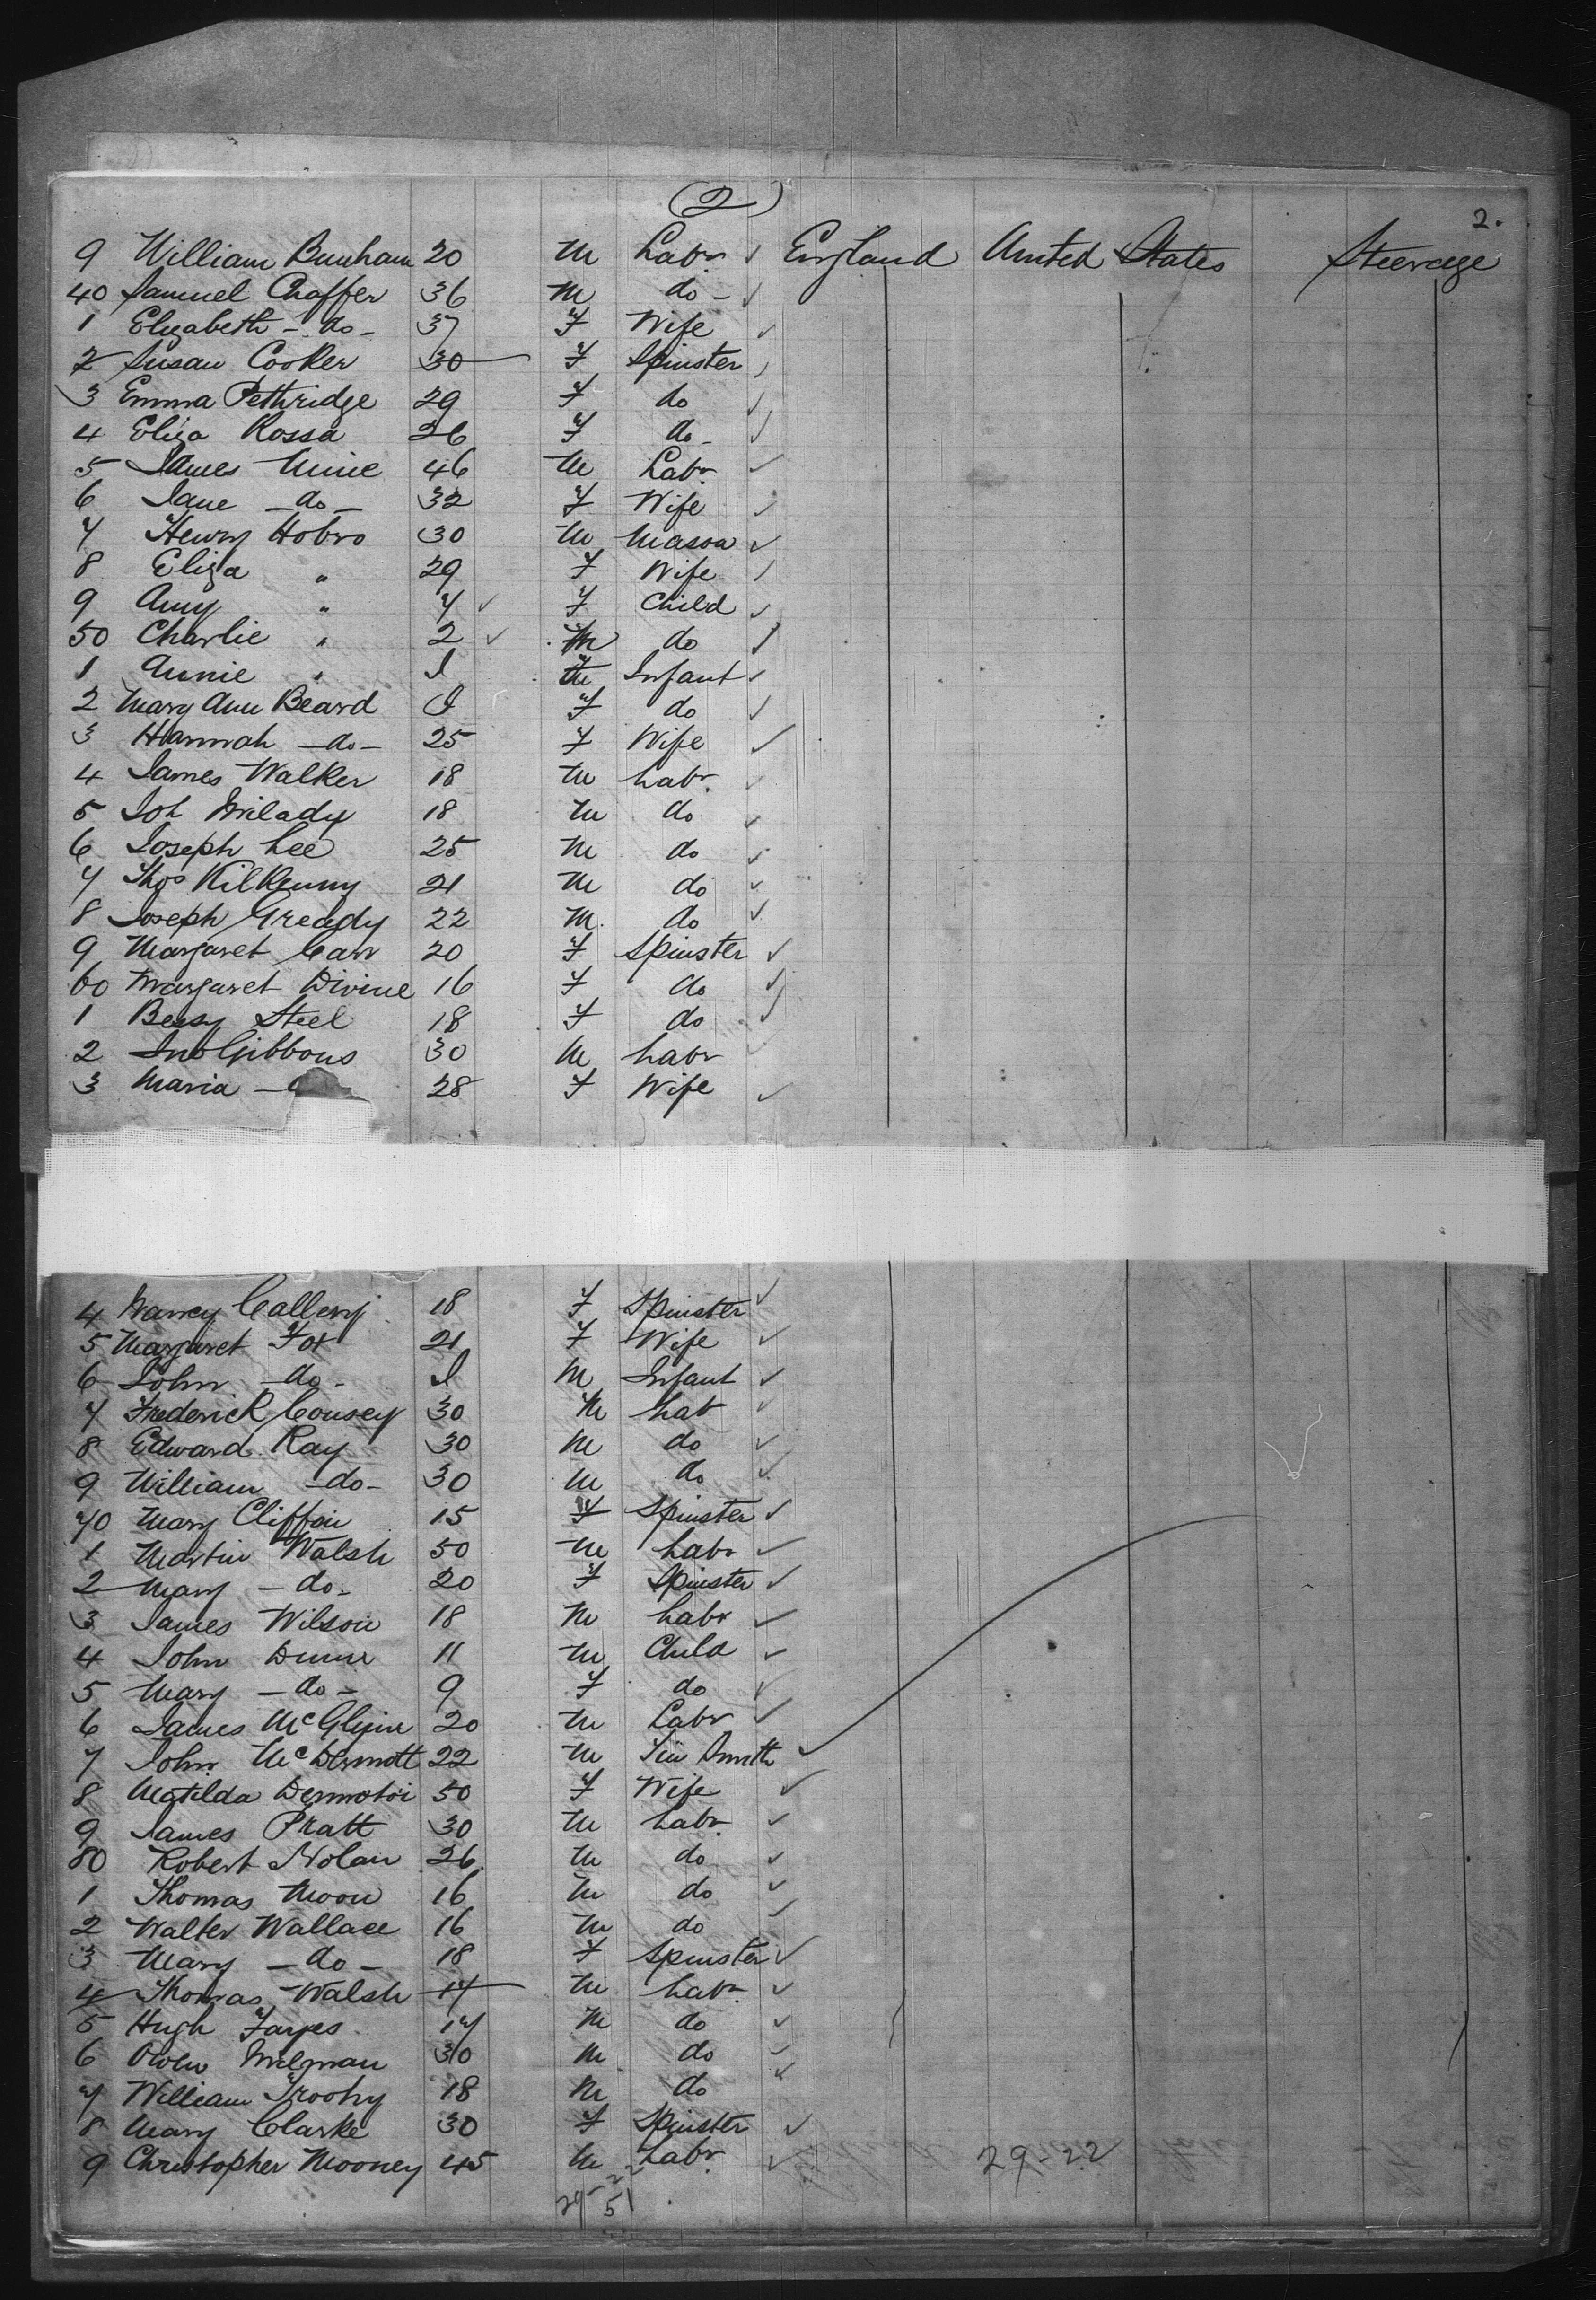 (2)
2.
9 William Bunham 20 M Labr England United States Steerage
40 Samuel Chaffer 36 M do -
1 Elizabeth - do - 37 F Wife
2 Susan Cooker 30 F Spinster
3 Emma Pethridge 29 F do
4 Eliza Rossa 26 F do -
5 James 46 M Labr
6 Jane - do - 32 F Wife
7 Henry Hobro 30 M Mason
8 Eliza " 29 F Wife
9 Amy " 7 F Child
50 Charlie " 2 M do
1 Annie " I Infant
2 Mary Ann Beard I F do
3 Hannah - do - 25 F Wife
4 James Walker 18 M Labr
5 Milady 18 M do
6 Joseph Lee 25 M do
7 Thos Kilkenny 21 M do
8 Joseph Gready 22 M. do
9 Margaret Carr 20 F Spinster
60 Margaret Divine 16 F do
1 Bessy Steel 18 F do
2 Jno Gibbons 30 M Labr
3 Maria - 28 F Wife
4 Nancy 18 F Spinster
5 Margaret Fox 21 F Wife
6 John - do - I M Infant
7 Frederick Cousey 30 M Lab
8 Edward Ray 30 M do
9 William - do - 30 M do
70 Mary 15 F Spinster
1 Martin Walsh 50 M Labr
2 Mary - do - 20 F Spinster
3 James Wilson 18 M Labr
4 John Dunne 11 M Child
5 Mary - do - 9 F do
6 James McGlynn 20 M Labr
7 John McDermott 22 M Tin Smith
8 Matilda 50 F Wife
9 James Pratt 30 M Labr
80 Robert Nolan 26 M do
1 Thomas Moon 16 M do
2 Walter Wallace 16 M do
3 Mary - do - 18 F Spinster
4 Thomas Walsh 17 M Labr
5 Hugh 17 M do
6 Owen 30 M do
7 William 18 M do
8 Mary Clarke 30 F Spinster
9 Christopher Mooney 45 M Labr
29-22
29-22
51